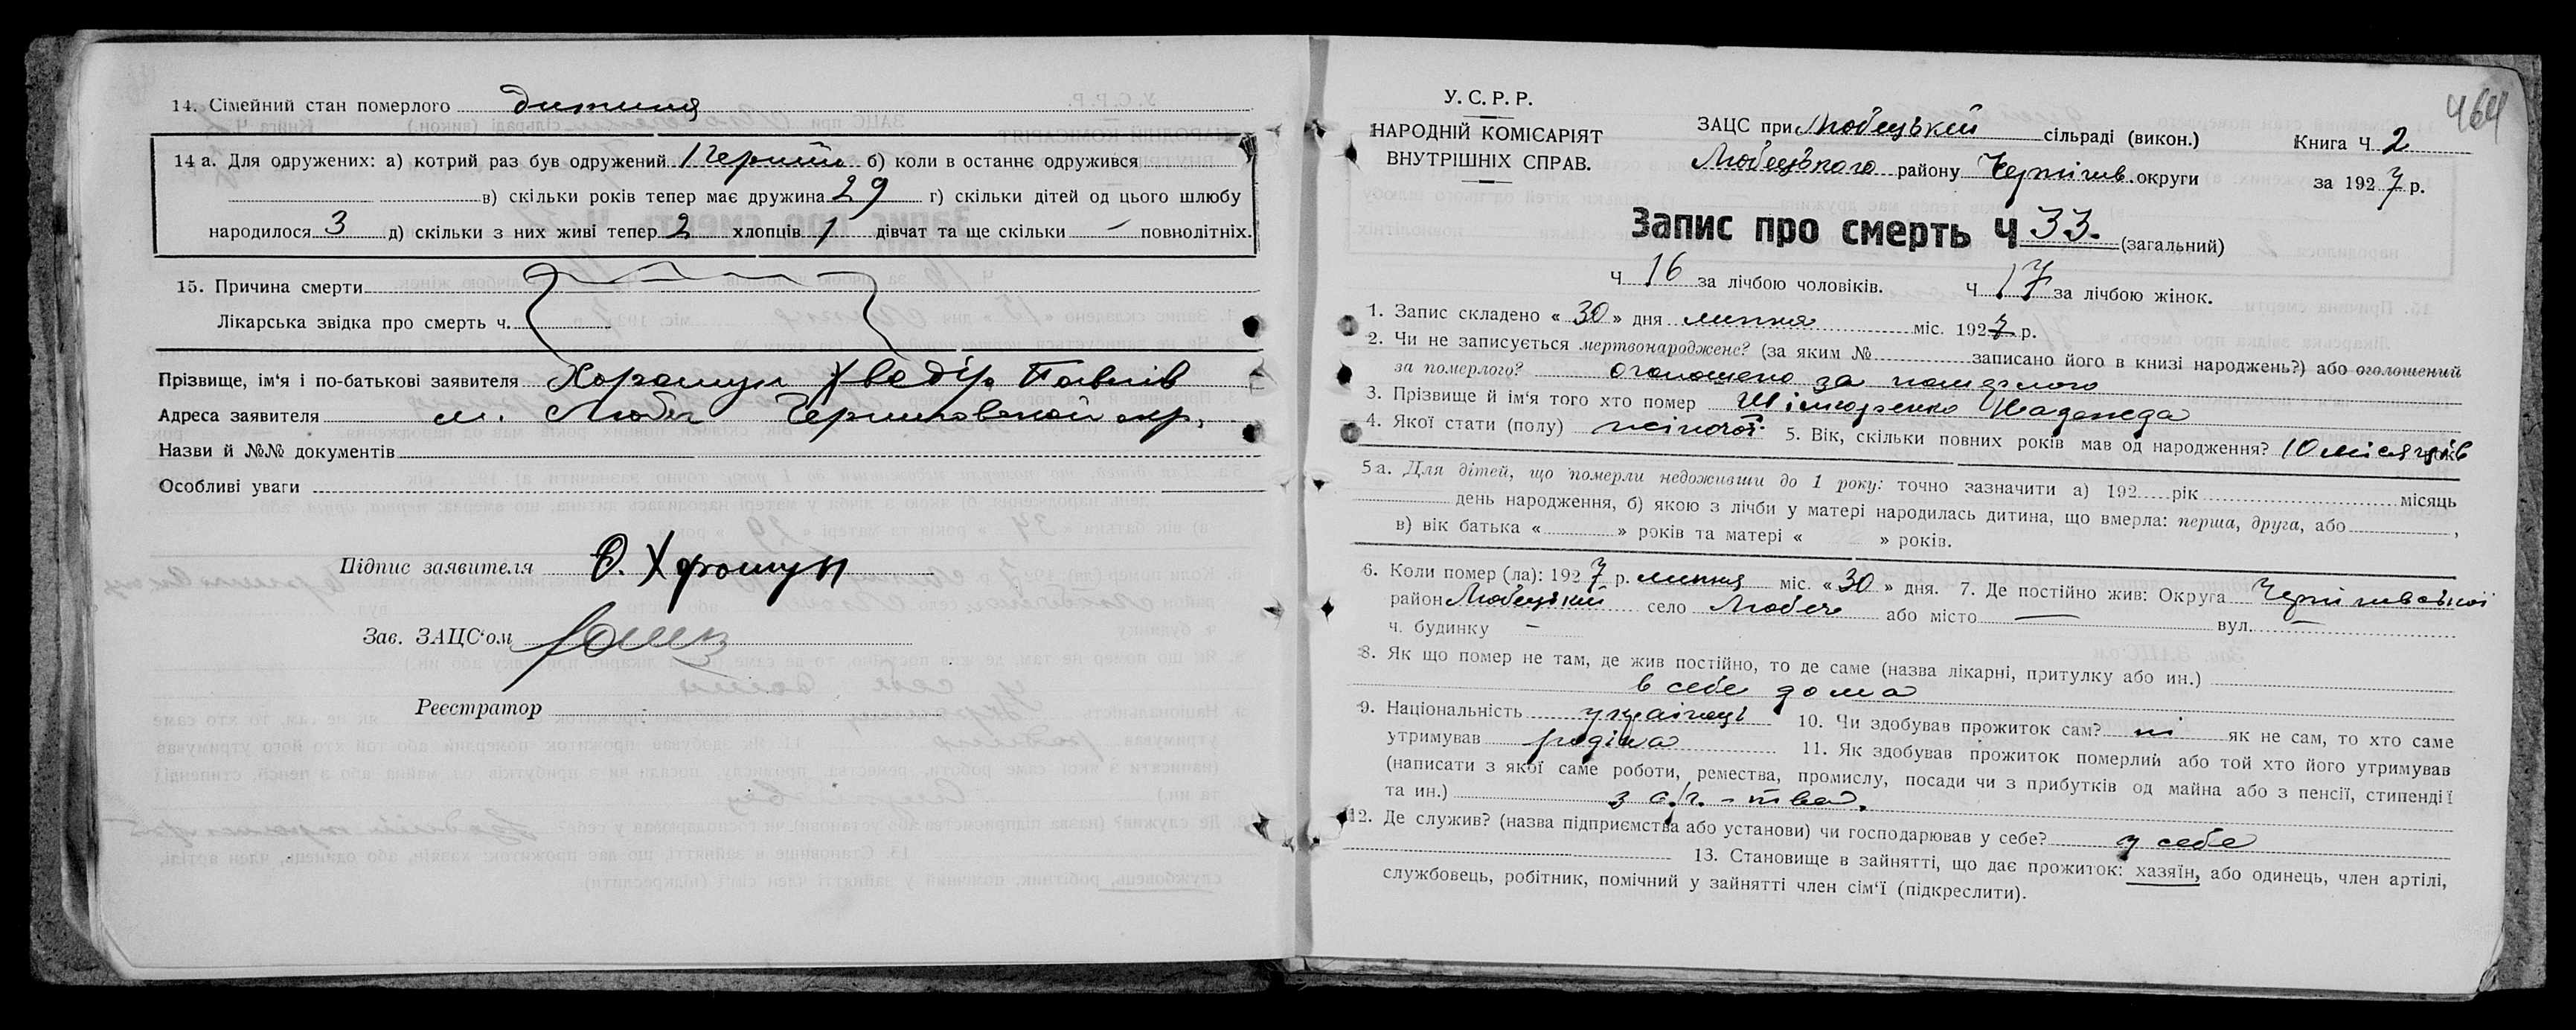 14. Сімейний стан померлого дитина
14 а. Для одружених: а) котрий раз був одружений б) коли в останнє одружився
в) скільки років тепер має дружина 29 г) скільки дітей од цього шлюбу
народилося 3 д) скільки з них живі тепер 2 хлопців 1 дівчат та ще скільки — повнолітніх.
15. Причина смерти
Лікарська звідка про смерть ч.
Прізвище, ім'я і по-батькові заявителя Хорошун Хведір Павлів
Адреса заявителя м. Любеч Черниговской окр.
Назви й №№ документів
Особливі уваги
Підпис заявителя Ф. Хорошун
Зав. ЗАЦС'ом
Реєстратор
464
У. С. Р. Р.
НАРОДНІЙ КОМІСАРІЯТ
ВНУТРІШНІХ СПРАВ.
ЗАЦС при Любецькій сільраді (викон.) Книга Ч 2
Любецького району Чернігів. округи за 1927 р.
Запис про смерть Ч 33. (загальний)
Ч 16 за лічбою чоловіків. Ч 17 за лічбою жінок.
1. Запис складено « 30 » дня липня міс. 1927 р.
2. Чи не записується мертвонароджене? (за яким № записано його в книзі народжень?) або оголошений
за померлого? оголошено за померлого
3. Прізвище й ім'я того хто помер Надежда
4. Якої стати (полу) жіночої 5. Вік, скільки повних років мав од народження? 10 місяців
5 а. Для дітей, що померли недоживши до 1 року: точно зазначити а) 192 рік місяць
день народження, б) якою з лічби у матері народилась дитина, що вмерла: перша, друга, або ,
в) вік батька « » років та матері « » років.
6. Коли помер (ла): 1927 р. липня міс. « 30 » дня. 7. Де постійно жив: Округа Чернігівської
район Любецький село Любеч або місто — вул. —
ч. будинку —
8. Як що помер не там, де жив постійно, то де саме (назва лікарні, притулку або ин.)
в себе дома
9. Національність українці 10. Чи здобував прожиток сам? ні як не сам, то хто саме
утримував родина 11. Як здобував прожиток померлий або той хто його утримував
(написати з якої саме роботи, ремества, промислу, посади чи з прибутків од майна або з пенсії, стипендії
та ин.) з с/г.-тва.
12. Де служив? (назва підприємства або установи) чи господарював у себе? у себе
13. Становище в зайнятті, що дає прожиток: хазяїн, або одинець, член артілі,
службовець, робітник, помічний у зайнятті член сім'ї (підкреслити).